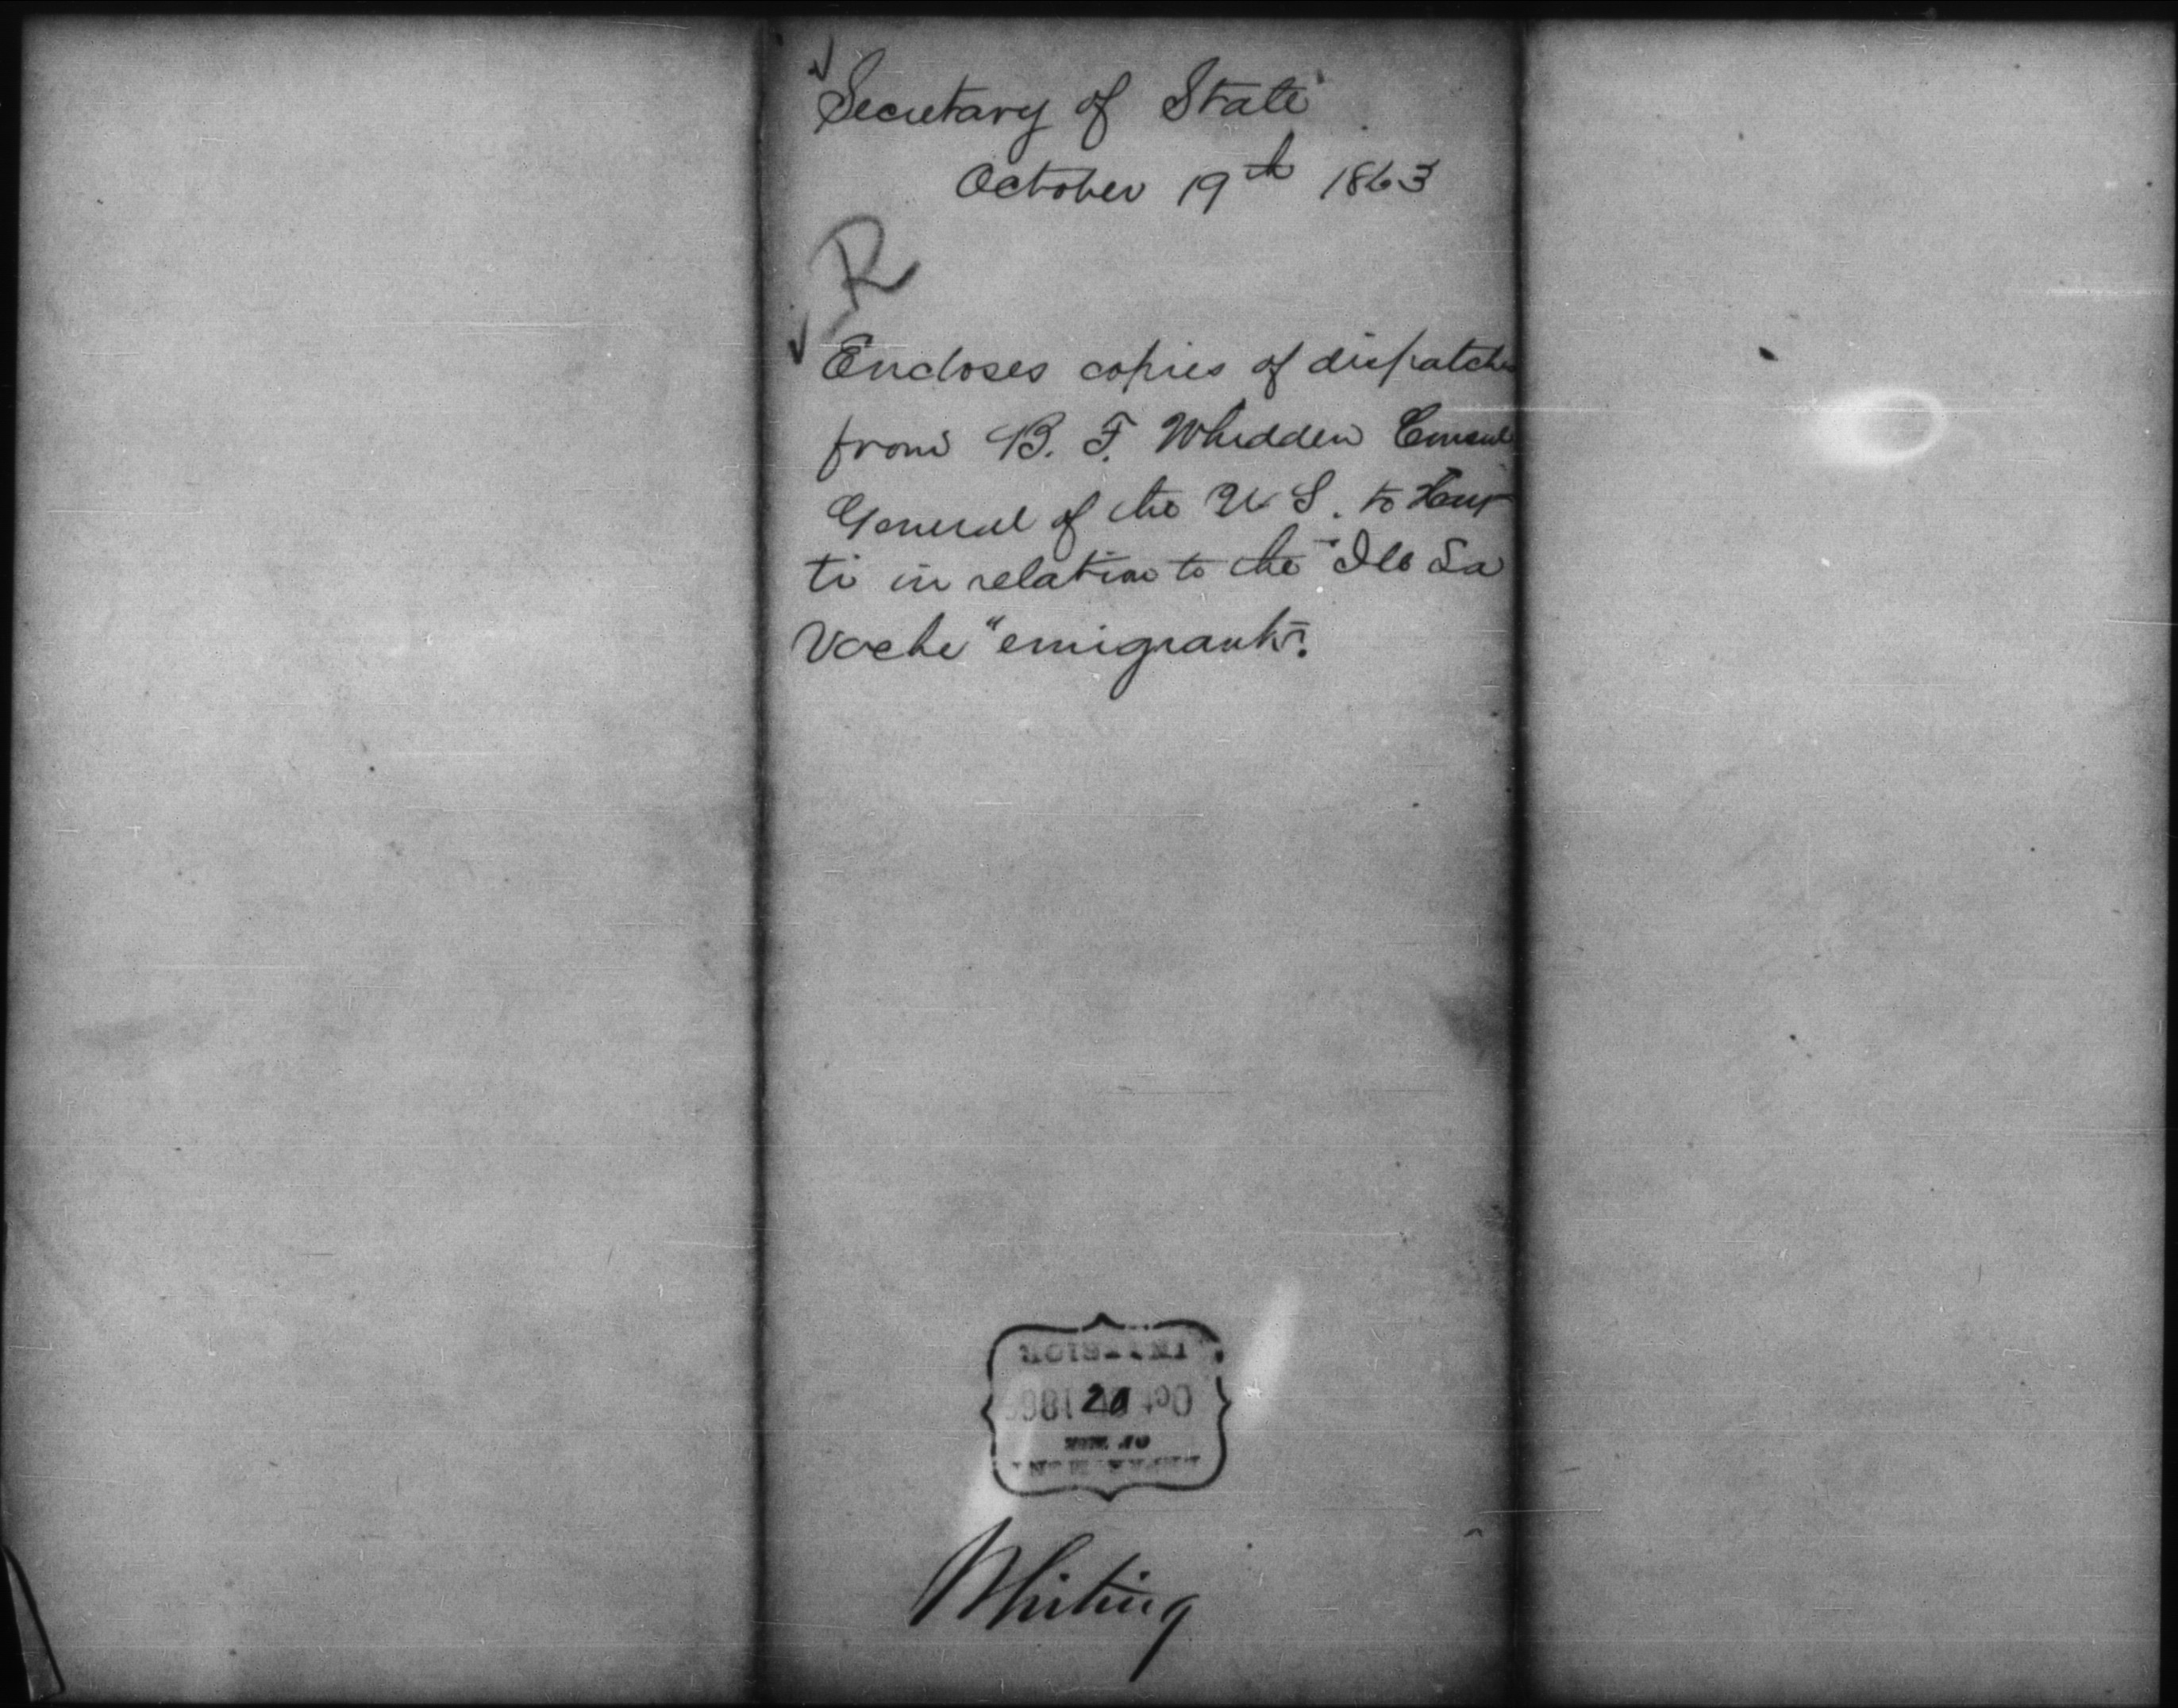 Secretary of State
October 19th 1863
R
Encloses copies of dispatches
from B. F. Whidden Consul
General of the U S. to Hay-
ti in relation to the "Ile La
Vache" emigrants.
Oct 20 186
OF THE
Whiting